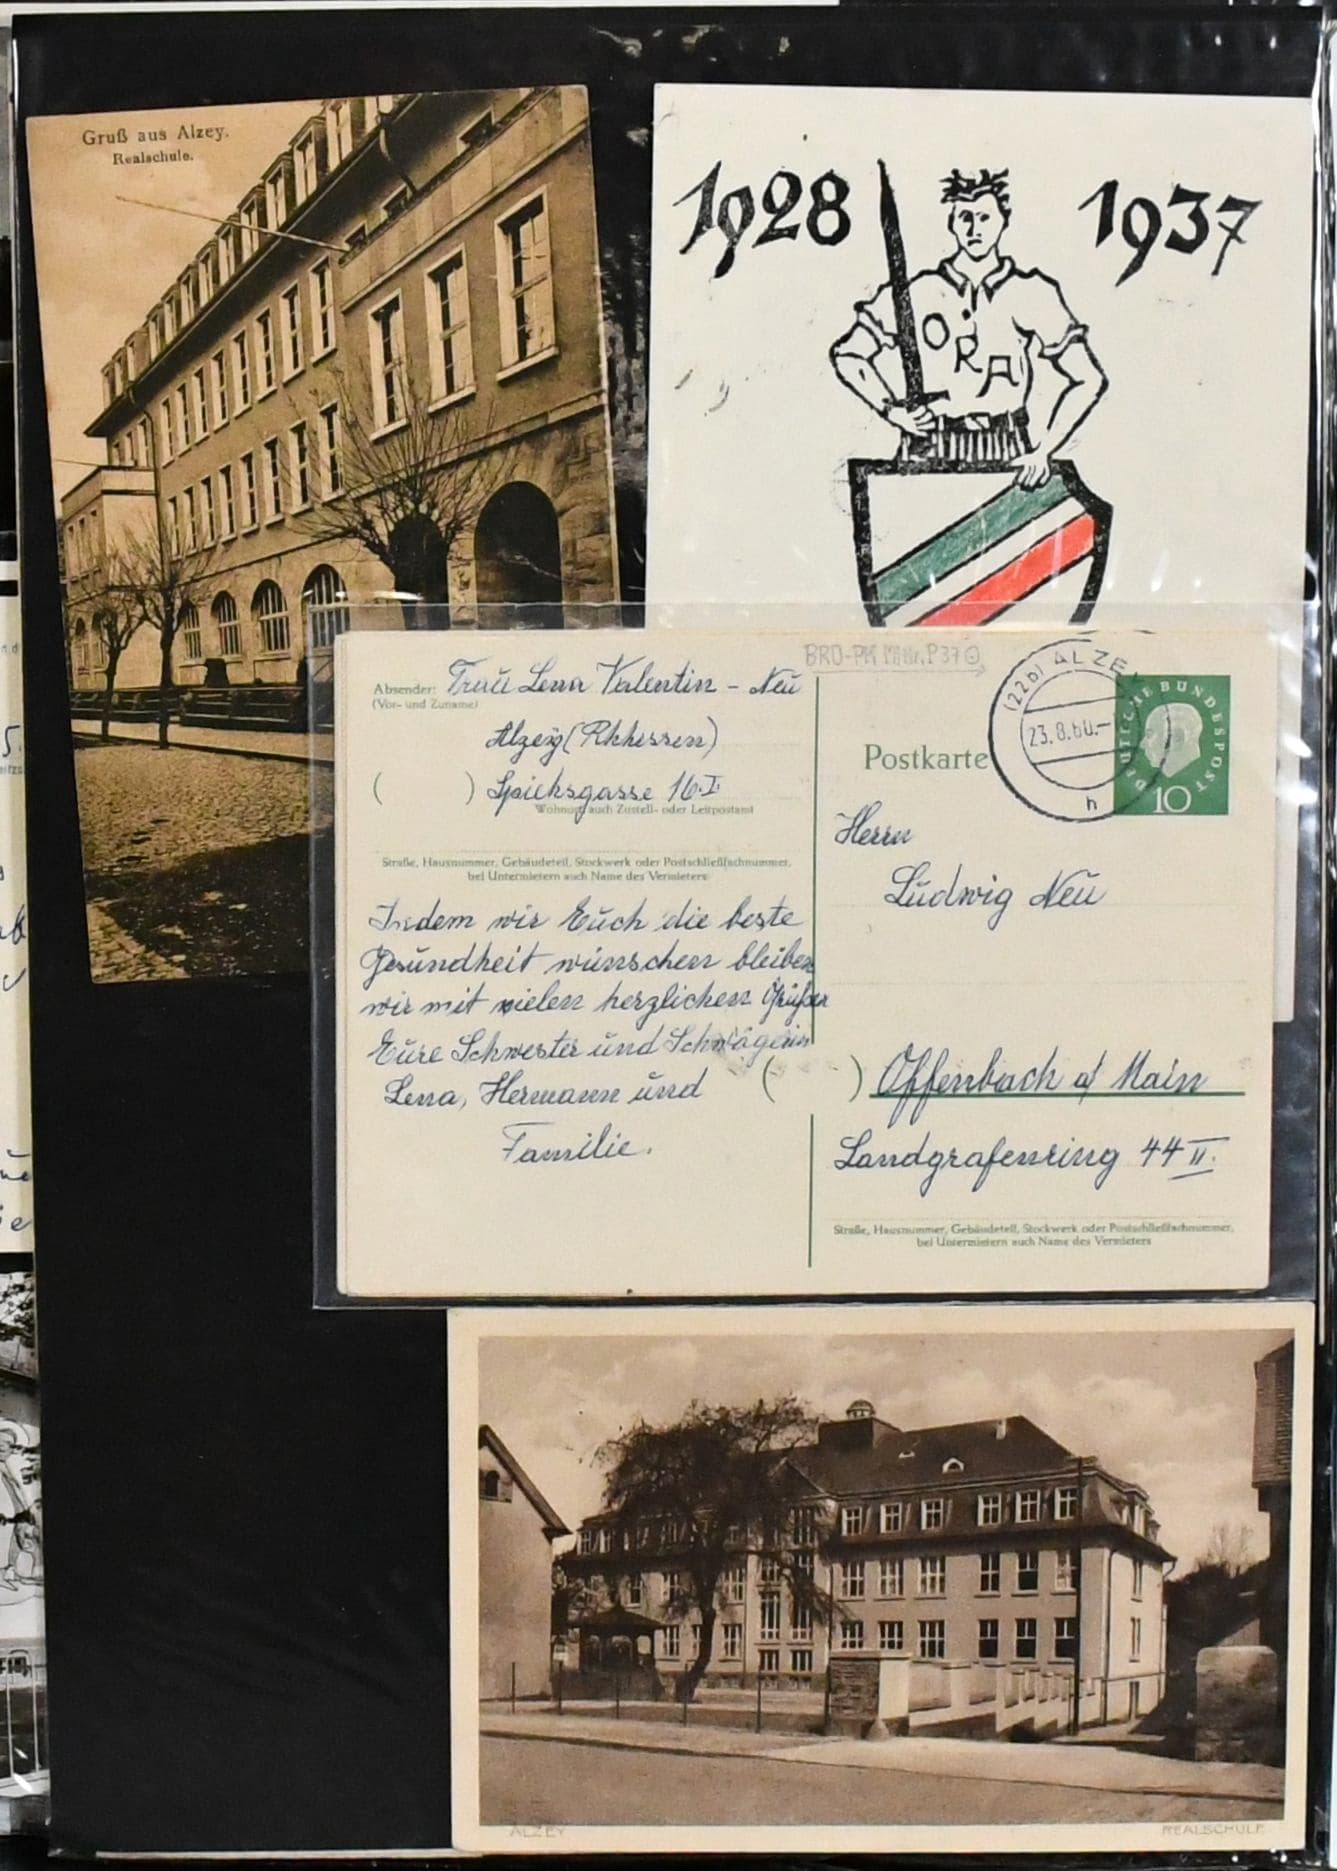 Gruß aus Alzey.
Realschule.
1928 1937
O.
R
A
BRD-PK P 37
Absender: Frau Lena Valentin - Neu
(Vor- und Zuname)
Alzey (Rhhessen)
( ) Spießgasse 16. I.
Wohnort, auch Zustell- oder Leitpostamt
Straße, Hausnummer, Gebäudeteil, Stockwerk oder Postschließfachnummer,
bei Untermietern auch Name des Vermieters
Indem wir Euch die beste
Gesundheit wünschen bleiben
wir mit vielen herzlichen Grüßen
Eure Schwester und Schwägerin
Lena, Hermann und
Familie.
Postkarte
(22b) ALZEY
23.8.60.-
h
DEUTSCHE BUNDESPOST
10
Herrn
Ludwig Neu
( ) Offenbach a/ Main
Landgrafenring 44 II.
Straße, Hausnummer, Gebäudeteil, Stockwerk oder Postschließfachnummer,
bei Untermietern auch Name des Vermieters
ALZEY
REALSCHULE